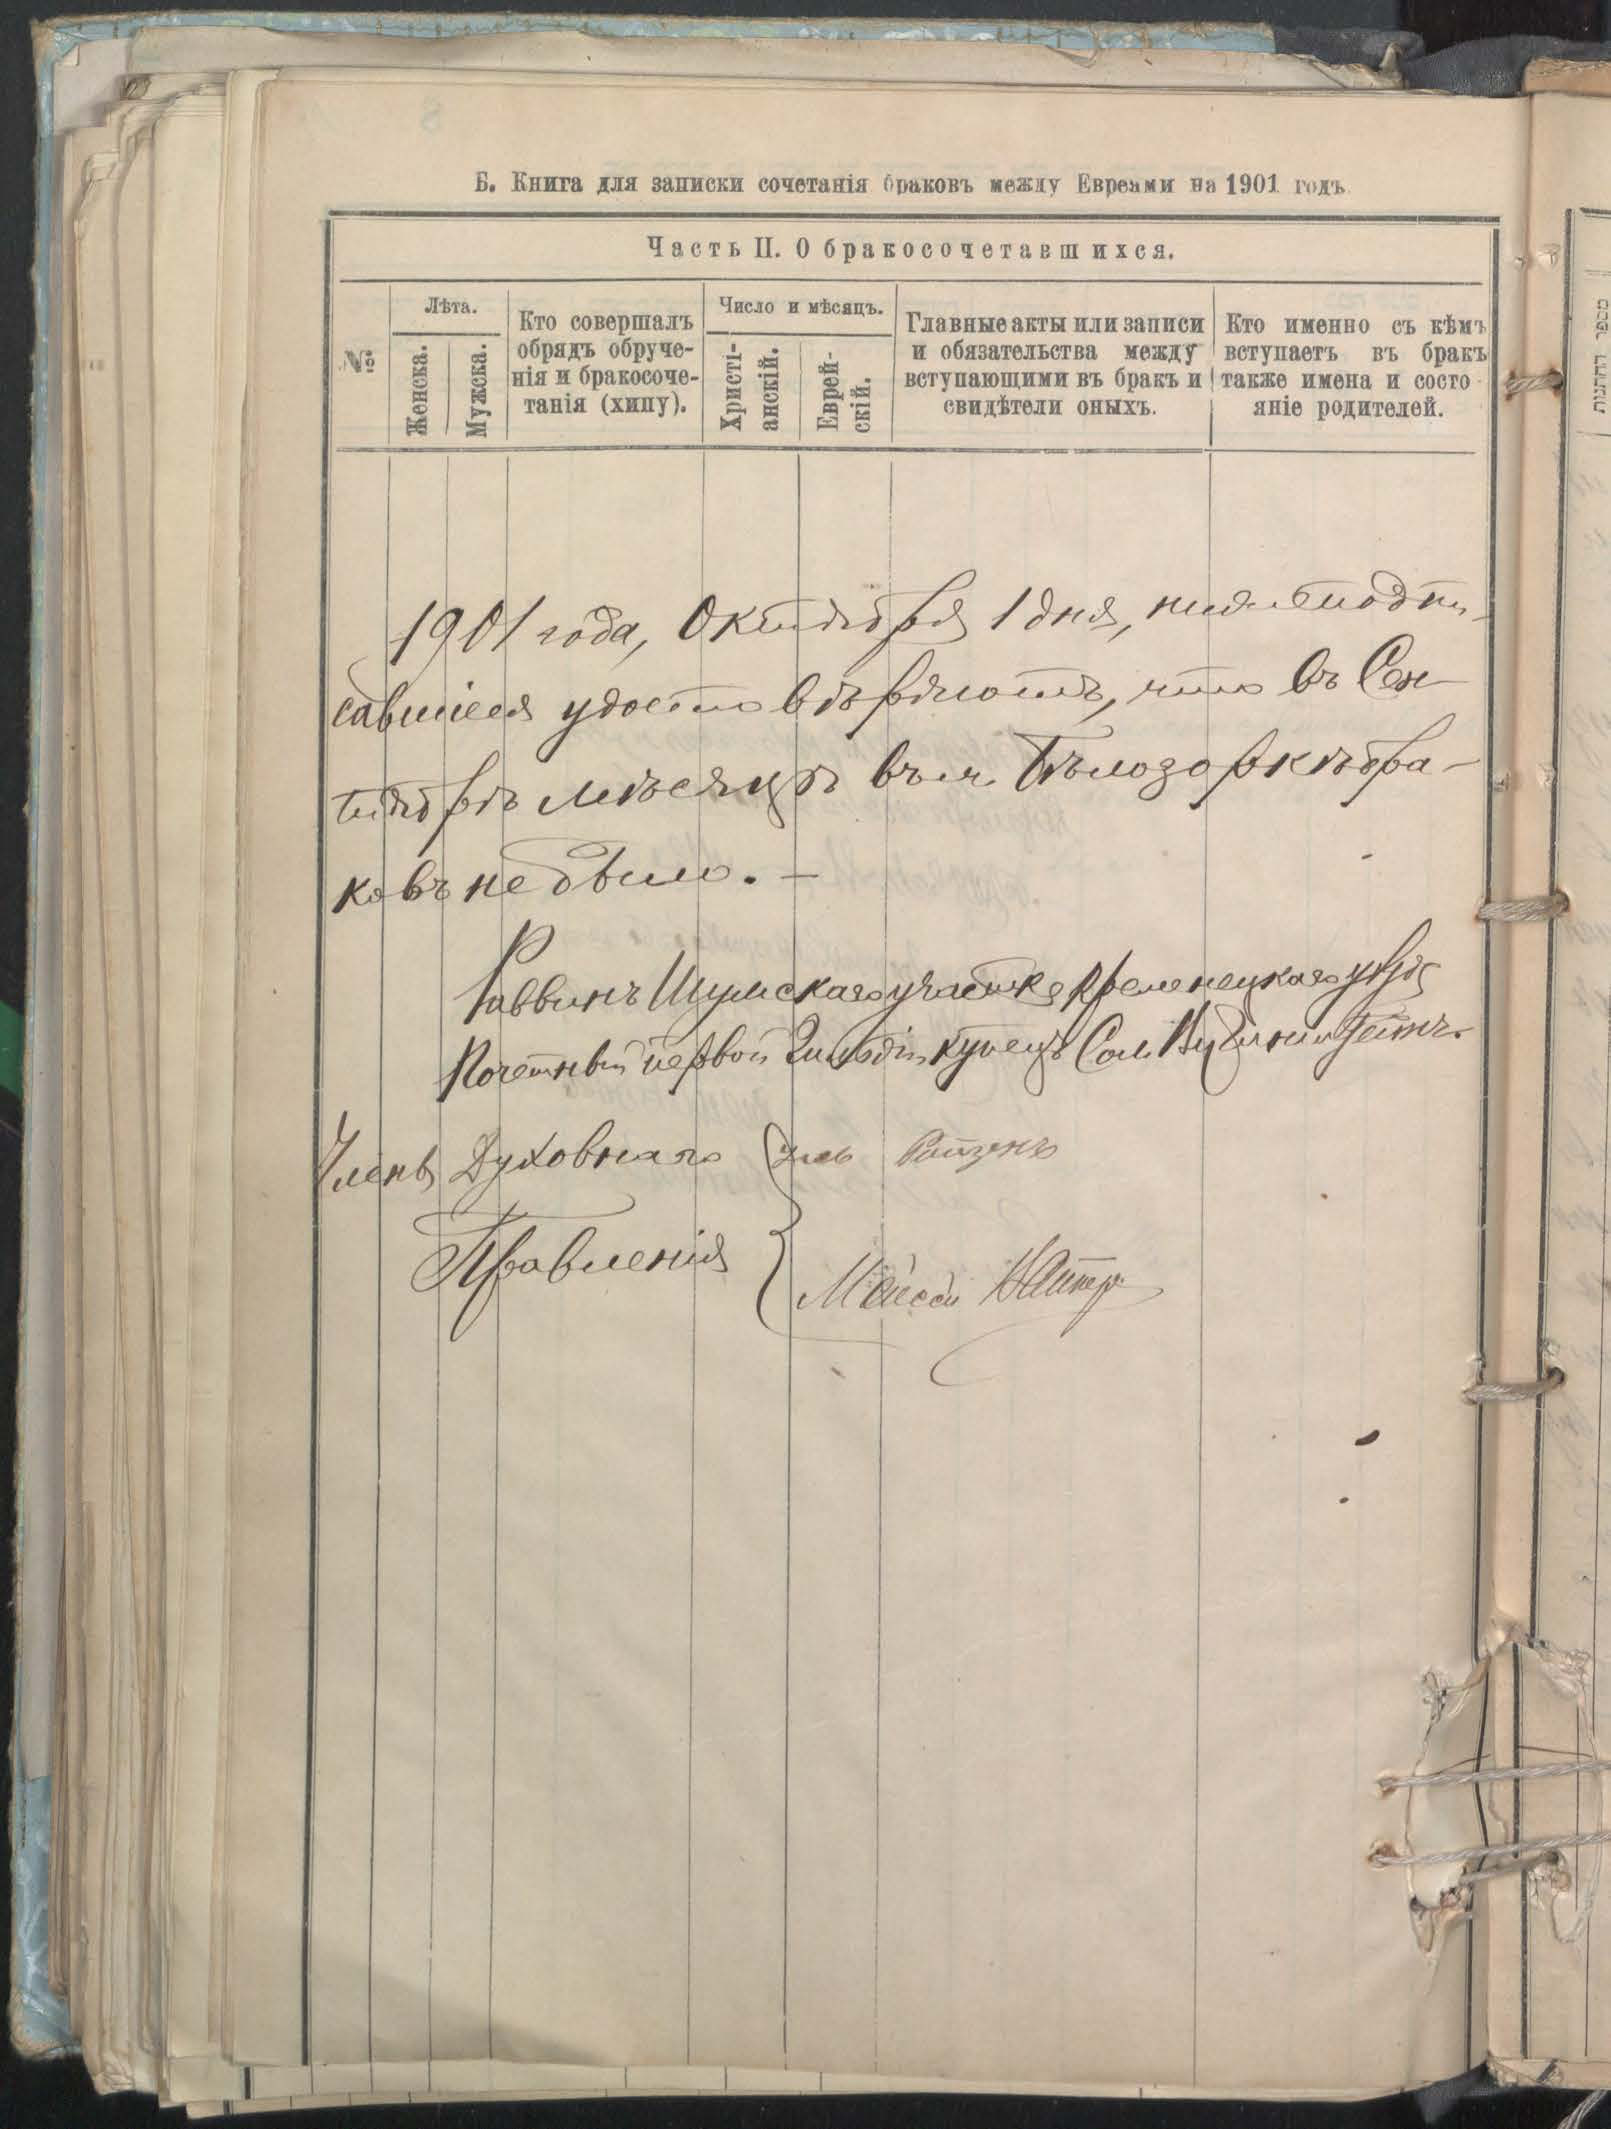 Б. Книга для записки сочетанія браковъ между Евреями на 1901 годъ
Часть II. О бракосочетавшихся.
№
Лѣта.
Женска.
Мужска.
Кто совершалъ
обрядъ обруче-
нія и бракосоче-
танія (хипу).
Число и мѣсяцъ.
Христі-
анскій.
Еврей-
скій.
Главные акты или записи
и обязательства между
вступающими въ бракъ и
свидѣтели оныхъ.
Кто именно съ кѣмъ
вступаетъ въ бракъ
также имена и состо
яніе родителей.
1901 года, Октября 1 дня, нижеподпи-
савшіеся удостовѣряютъ, что въ Сен-
тябрѣ мѣсяцѣ въ м. Бѣлозоркѣ бра-
ковъ не было. —
Раввинъ Шумскаго участка Кременецкаго уѣзда
Почетный первой Гильдіи купецъ Сол.
Члены Духовнаго
Правленія
מספר החתנות